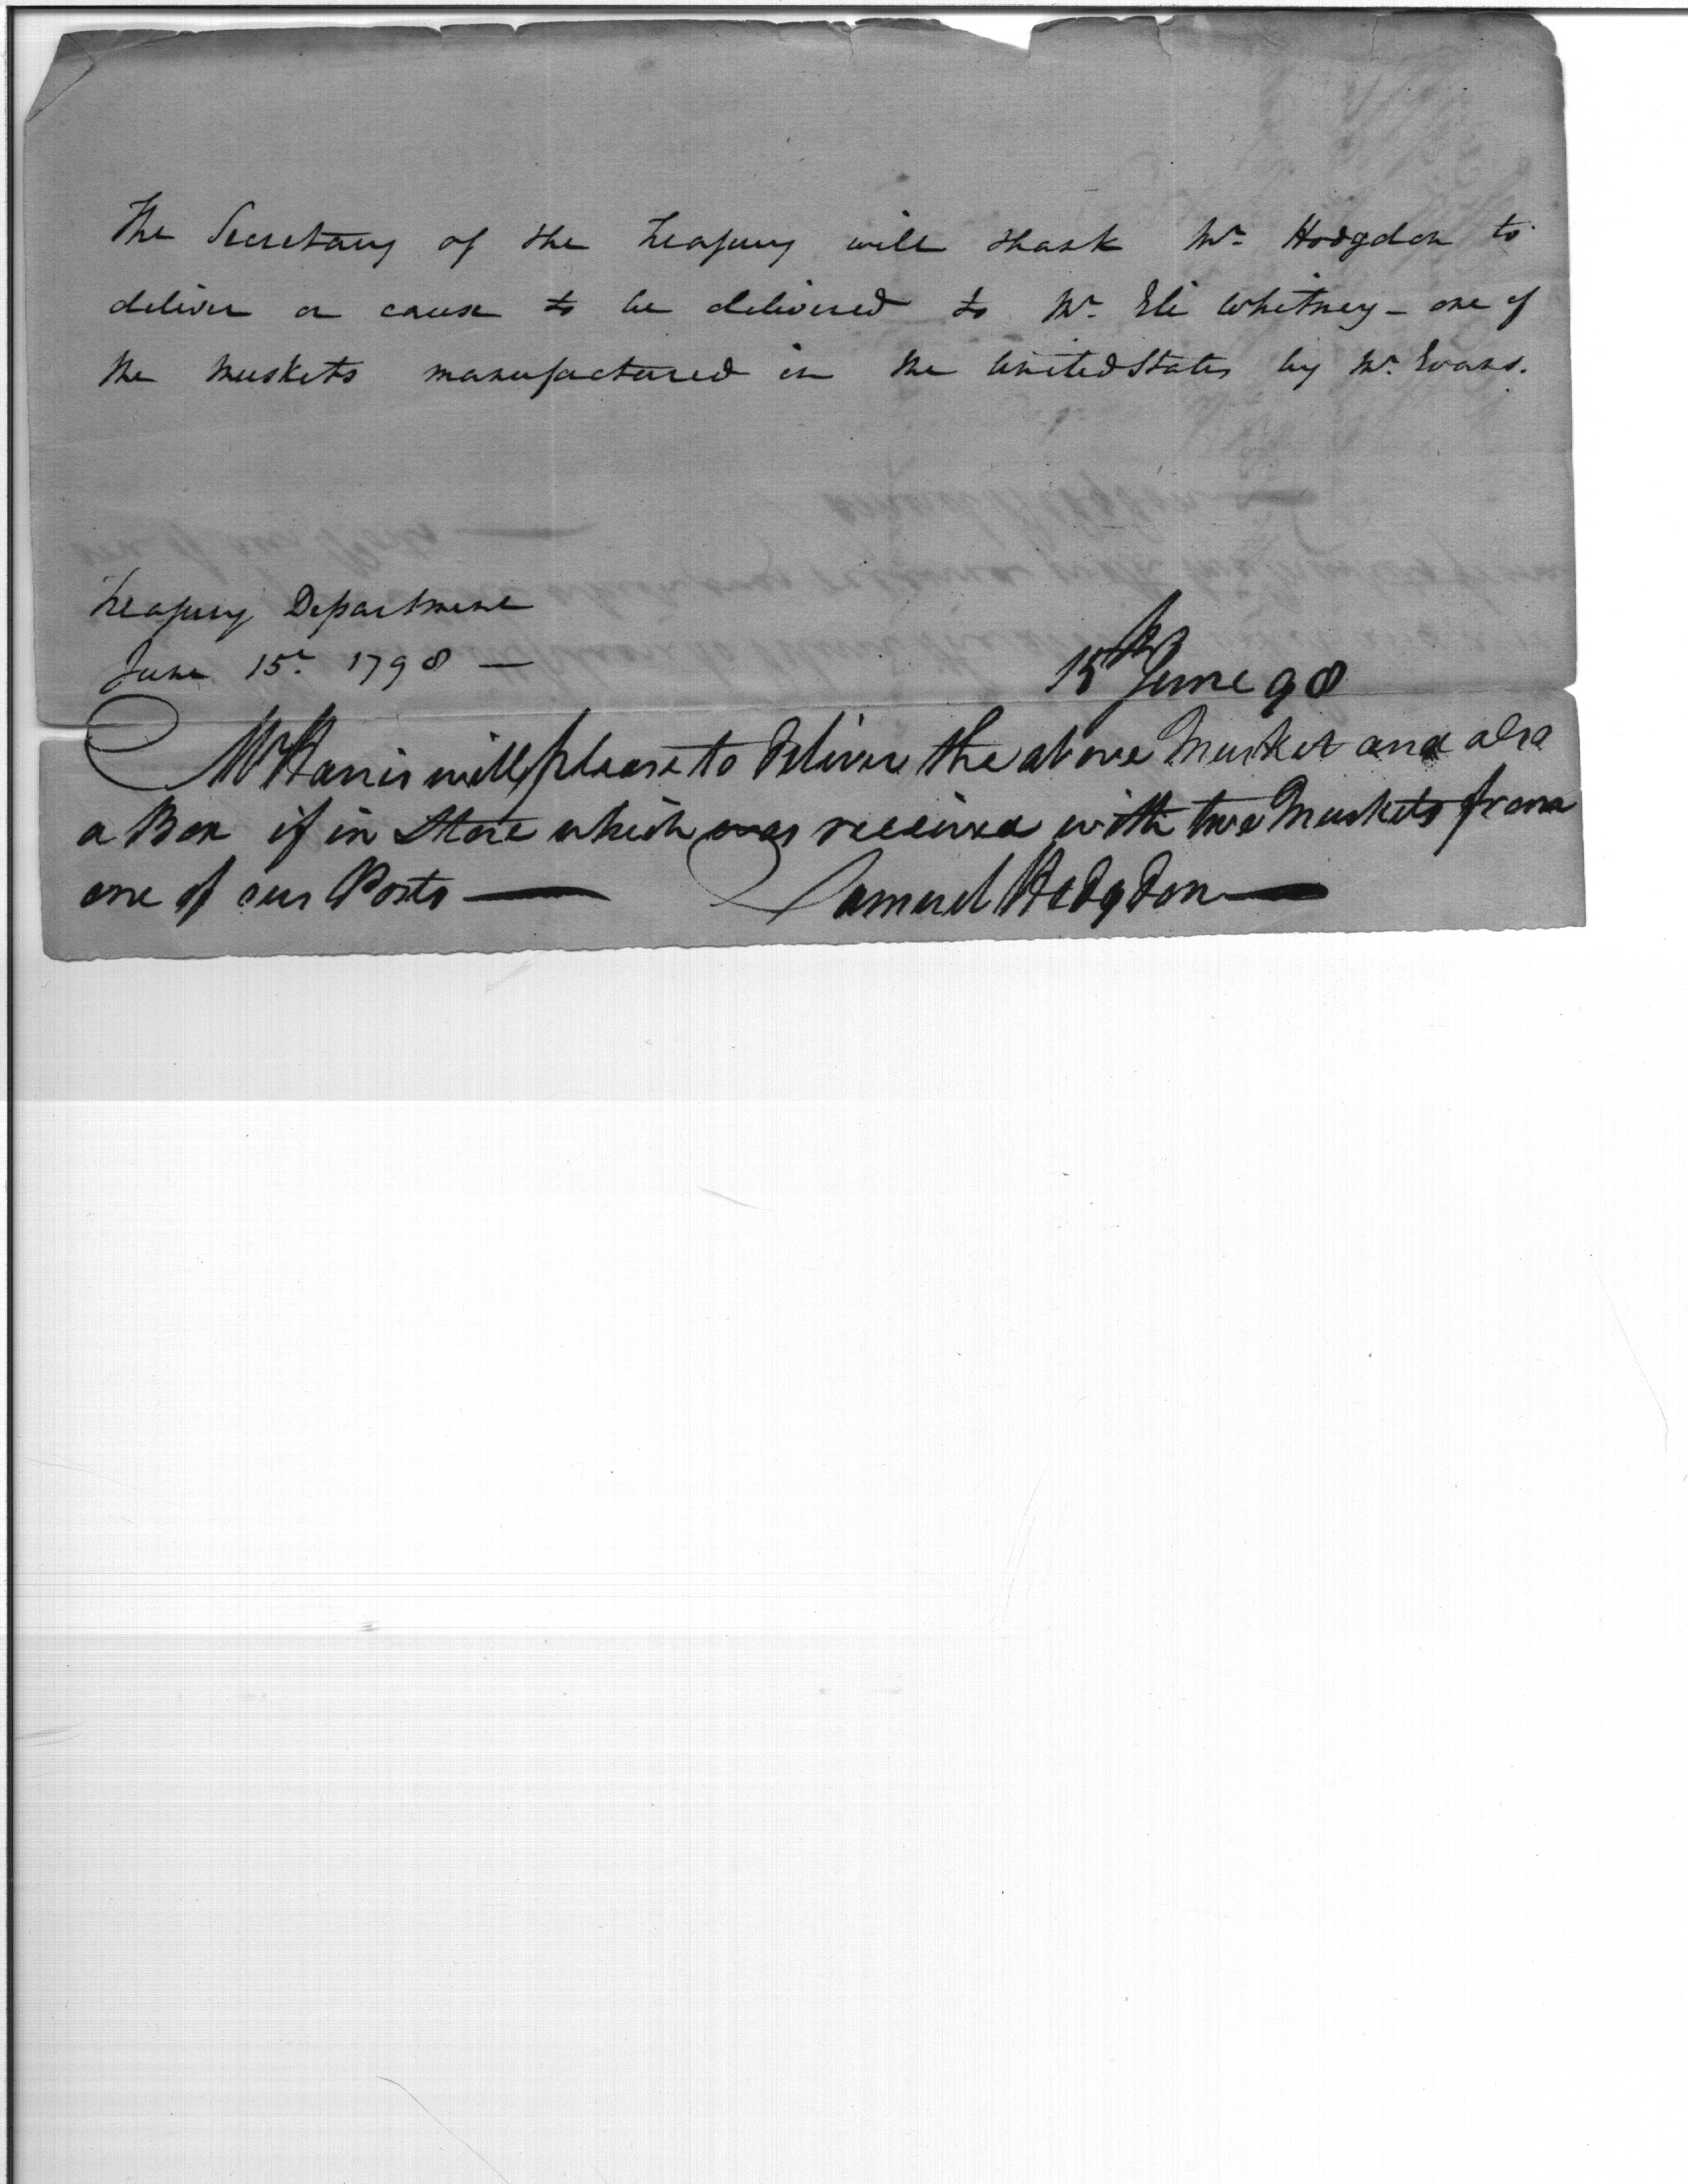 The Secretary of the Treasury will thank Mr. Hodgdon to
deliver or cause to be delivered to Mr. Eli Whitney - one of
the muskets manufactured in the United States by Mr. Evans.
Treasury Department
June 15th 1798 —
15th June 98
Mr Harris will please to deliver the above Musket and also
a Box if in Store which was received with two Muskets from
one of our Posts —
Samuel Hodgdon —